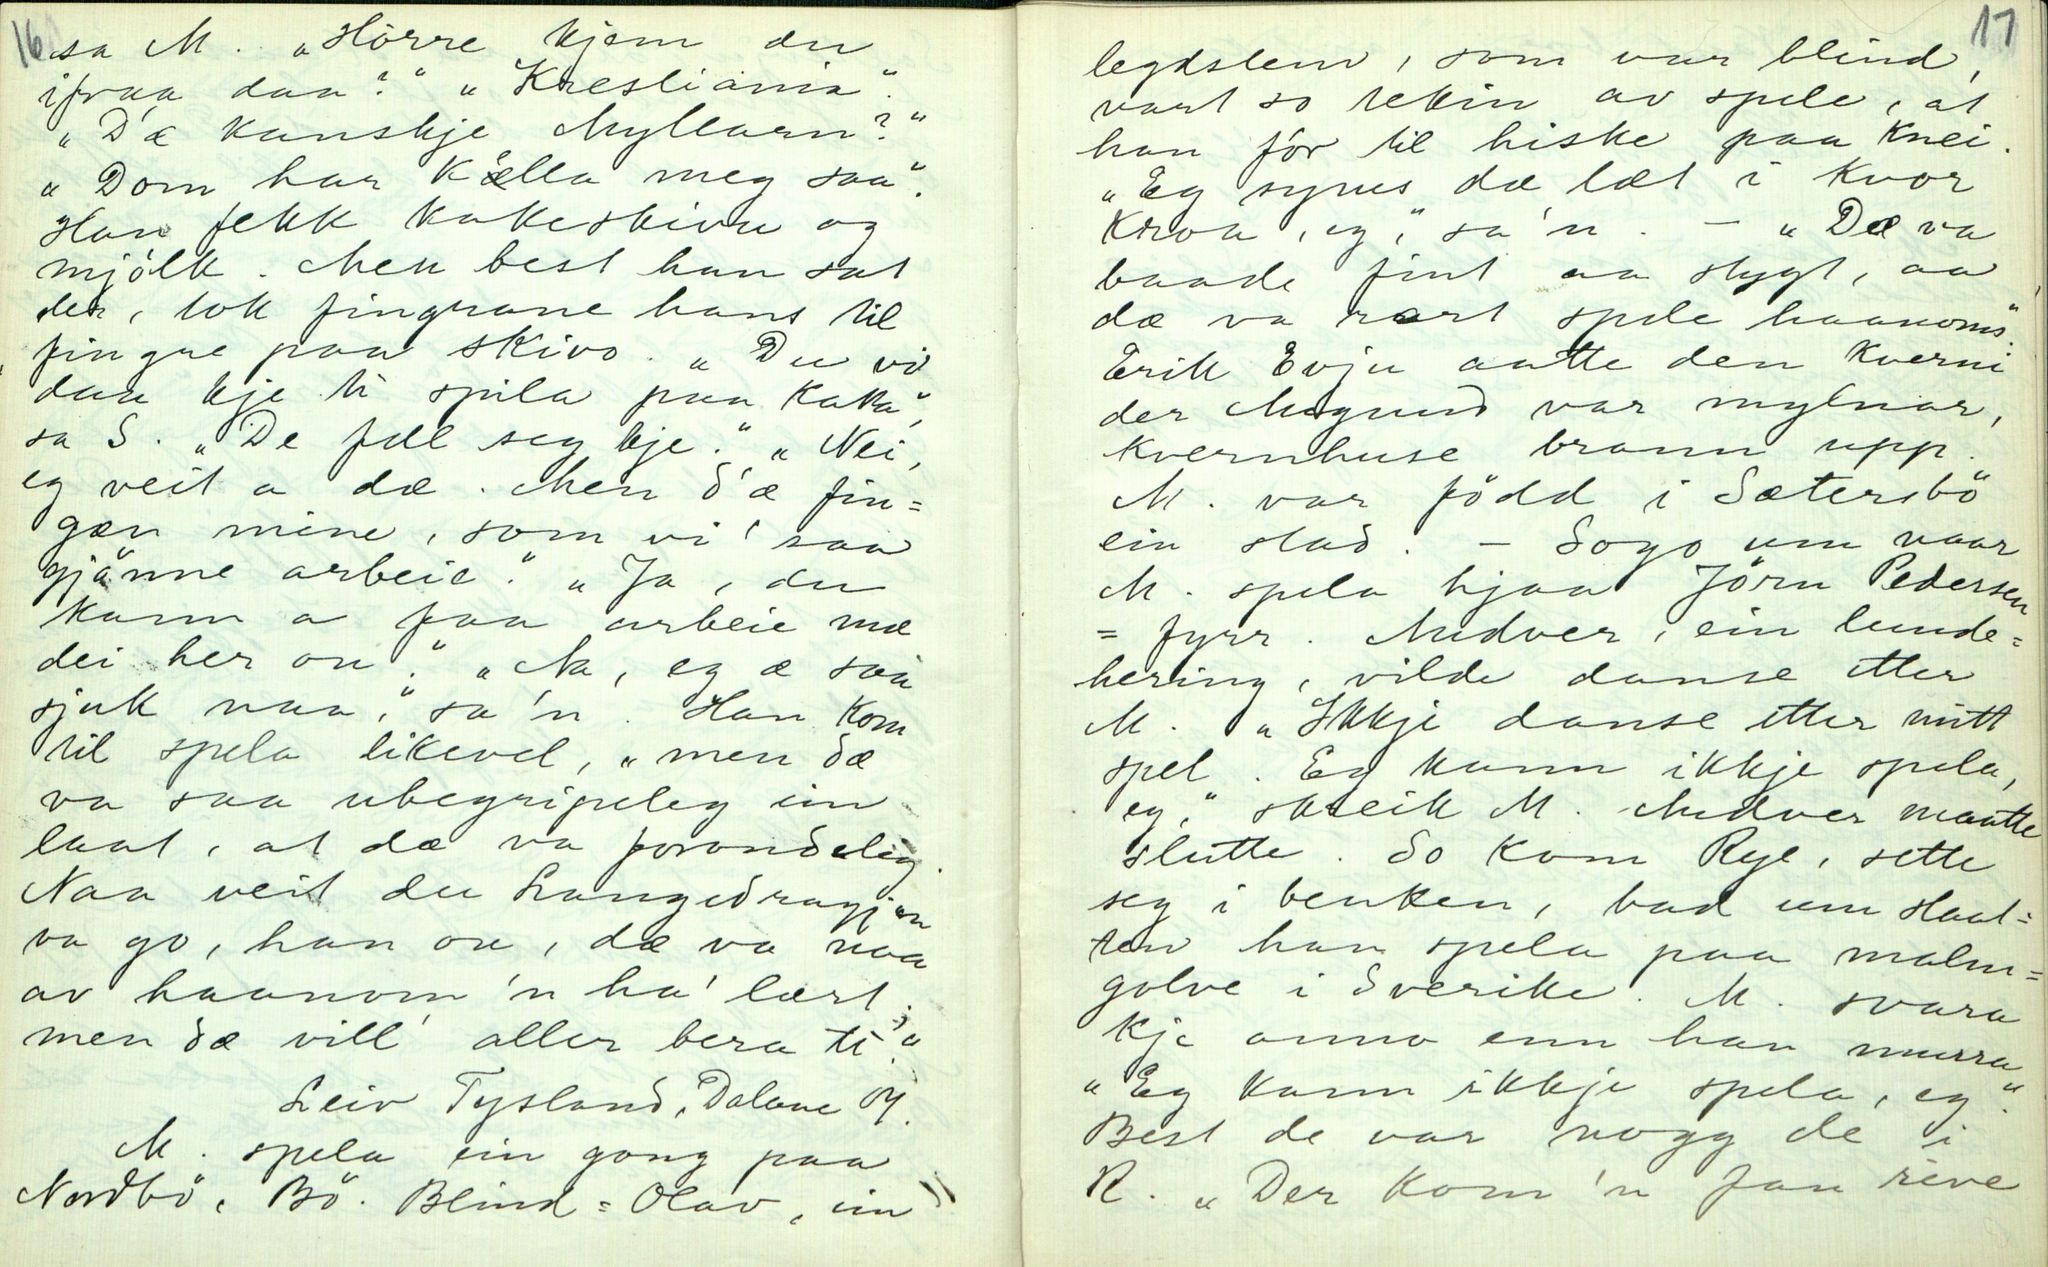 16
sa M. „Hörre kjem du
ifraa daa?" „Krestiania".
„D'æ kanskje Myllarn?"
„Dom har kælla meg saa".
Han fekk kakeskiva og
mjölk. Men best han sat
der, tok fingrane hans til
fingre paa skivo. „Du vi
daa kje ti spila paa kaka",
sa S. „De fæl seg kje." „Nei,
eg veit a dæ. Men d'æ fin=
gan mine, som vi' saa
gjänne arbeie." „Ja, du
kann a faa arbeie mæ
dei her ou." „Na, eg æ saa
sjuk naa," sa'n. Han kom
til spela likevel, „men dæ
va saa ubegripeleg ein
laat, at dæ va forondeleg.
Naa veit du Langedragjen
va go, han ou, dæ va naa
av haanom 'n ha' lært;
men dæ vill' aller bera ti."
Leiv Tysland, Dalane
M. spela ein gong paa
Nordbö, Bö. Blind=Olav, ein
17
legdslem, som var blind,
vart so tekin av spele, at
han fór til hiske paa knei.
„Eg synes dæ læt i kvor
kroa, eg," sa'n. – „Dæ va
baade fint aa stygt, aa
dæ va rart spele haanoms".
Erik Evju aatte den kverni
der Mogund var mylnar,
kvernhuse brann upp.
M. var född i Sætersbö
ein stad. – Sogo um naar
M. spela hjaa Jörn Pedersen
= fyrr. Midver, ein lunde=
hering, vilde danse etter
M. „Ikkje danse etter mitt
spel. Eg kann ikkje spela,
eg," skreik M. Midver maatte
slutte. So kom Rye, sette
seg i benken, bad um slaat=
ten han spela paa malm=
golve i Sverike. M. svara
kje anna enn han murra
„Eg kann ikkje spela, eg."
Best de var nogg de i
R. „Der kom 'n Fan reve